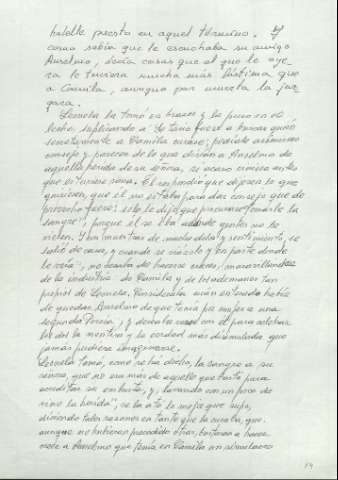 hubille puesto en aquel término. Y
como sabía que le escuchaba su amigo
Anselmo, decía cosas que al que le oye-
ra le tuviera mucha más lástima que
a Camila, aunque por muerta la juz-
gara.
Leonela la tomó en brazos y la puso en el
lecho, suplicando a Lotario fuese a buscar quien
secretamente a Camila curase; pedíale asimismo
consejo y parecer de lo que dirían a Anselmo de
aquella herida de su señora, si acaso viniese antes
que estuviese sana. Él respondió que dijesen lo que
quisiesen, que él no estaba para dar consejo que de
provecho fuese; sólo le dijo que procurase tomarle la
sangre, porque él se iba adonde gentes no le
viesen. Y con muestras de mucho dolor y sentimiento, se
salió de casa, y cuando se vio solo y en parte donde
le veía, no cesaba de hacerse cruces, maravillándose
de la industria de Camila y de los ademanes tan
propios de Leonela. Consideraba cuán enterado había
de quedar Anselmo de que tenía por mujer a una
segunda Porcia, y deseaba verse con él para celebrar
los dos la mentira y la verdad más disimulada que
jamás pudiera imaginarse.
Leonela tomó, como se ha dicho, la sangre a su
señora, que no era más de aquello que bastó para
acreditar su embuste, y, lavando con un poco de
vino la herida, se la ató lo mejor que supo,
diciendo tales razones en tanto que la curaba, que,
aunque no hubieran precedido otras, bastaran a hacer
creer a Anselmo que tenía en Camila un simulacro